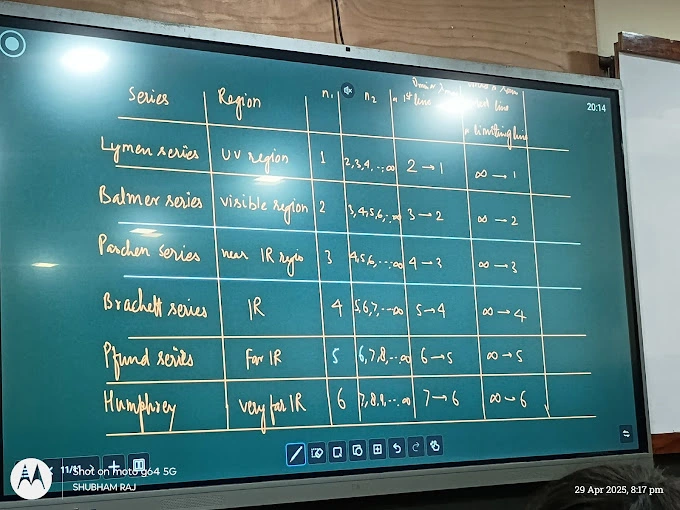 20:14
Series Region n₁ n₂
1st line line
limiting line
Lymen series UV region 1 2,3,4,..,∞ 2 → 1 ∞ → 1
Balmer series visible region 2 3,4,5,6,..∞ 3 → 2 ∞ → 2
Paschen series near IR regio 3 4,5,6,...∞ 4 → 3 ∞ → 3
Brackett series IR 4 5,6,7,...∞ 5 → 4 ∞ → 4
Pfund series Far IR 5 6,7,8,...∞ 6 → 5 ∞ → 5
Humphrey very far IR 6 7,8,9,...∞ 7 → 6 ∞ → 6
Shot on moto g64 5G
SHUBHAM RAJ
29 Apr 2025, 8:17 pm